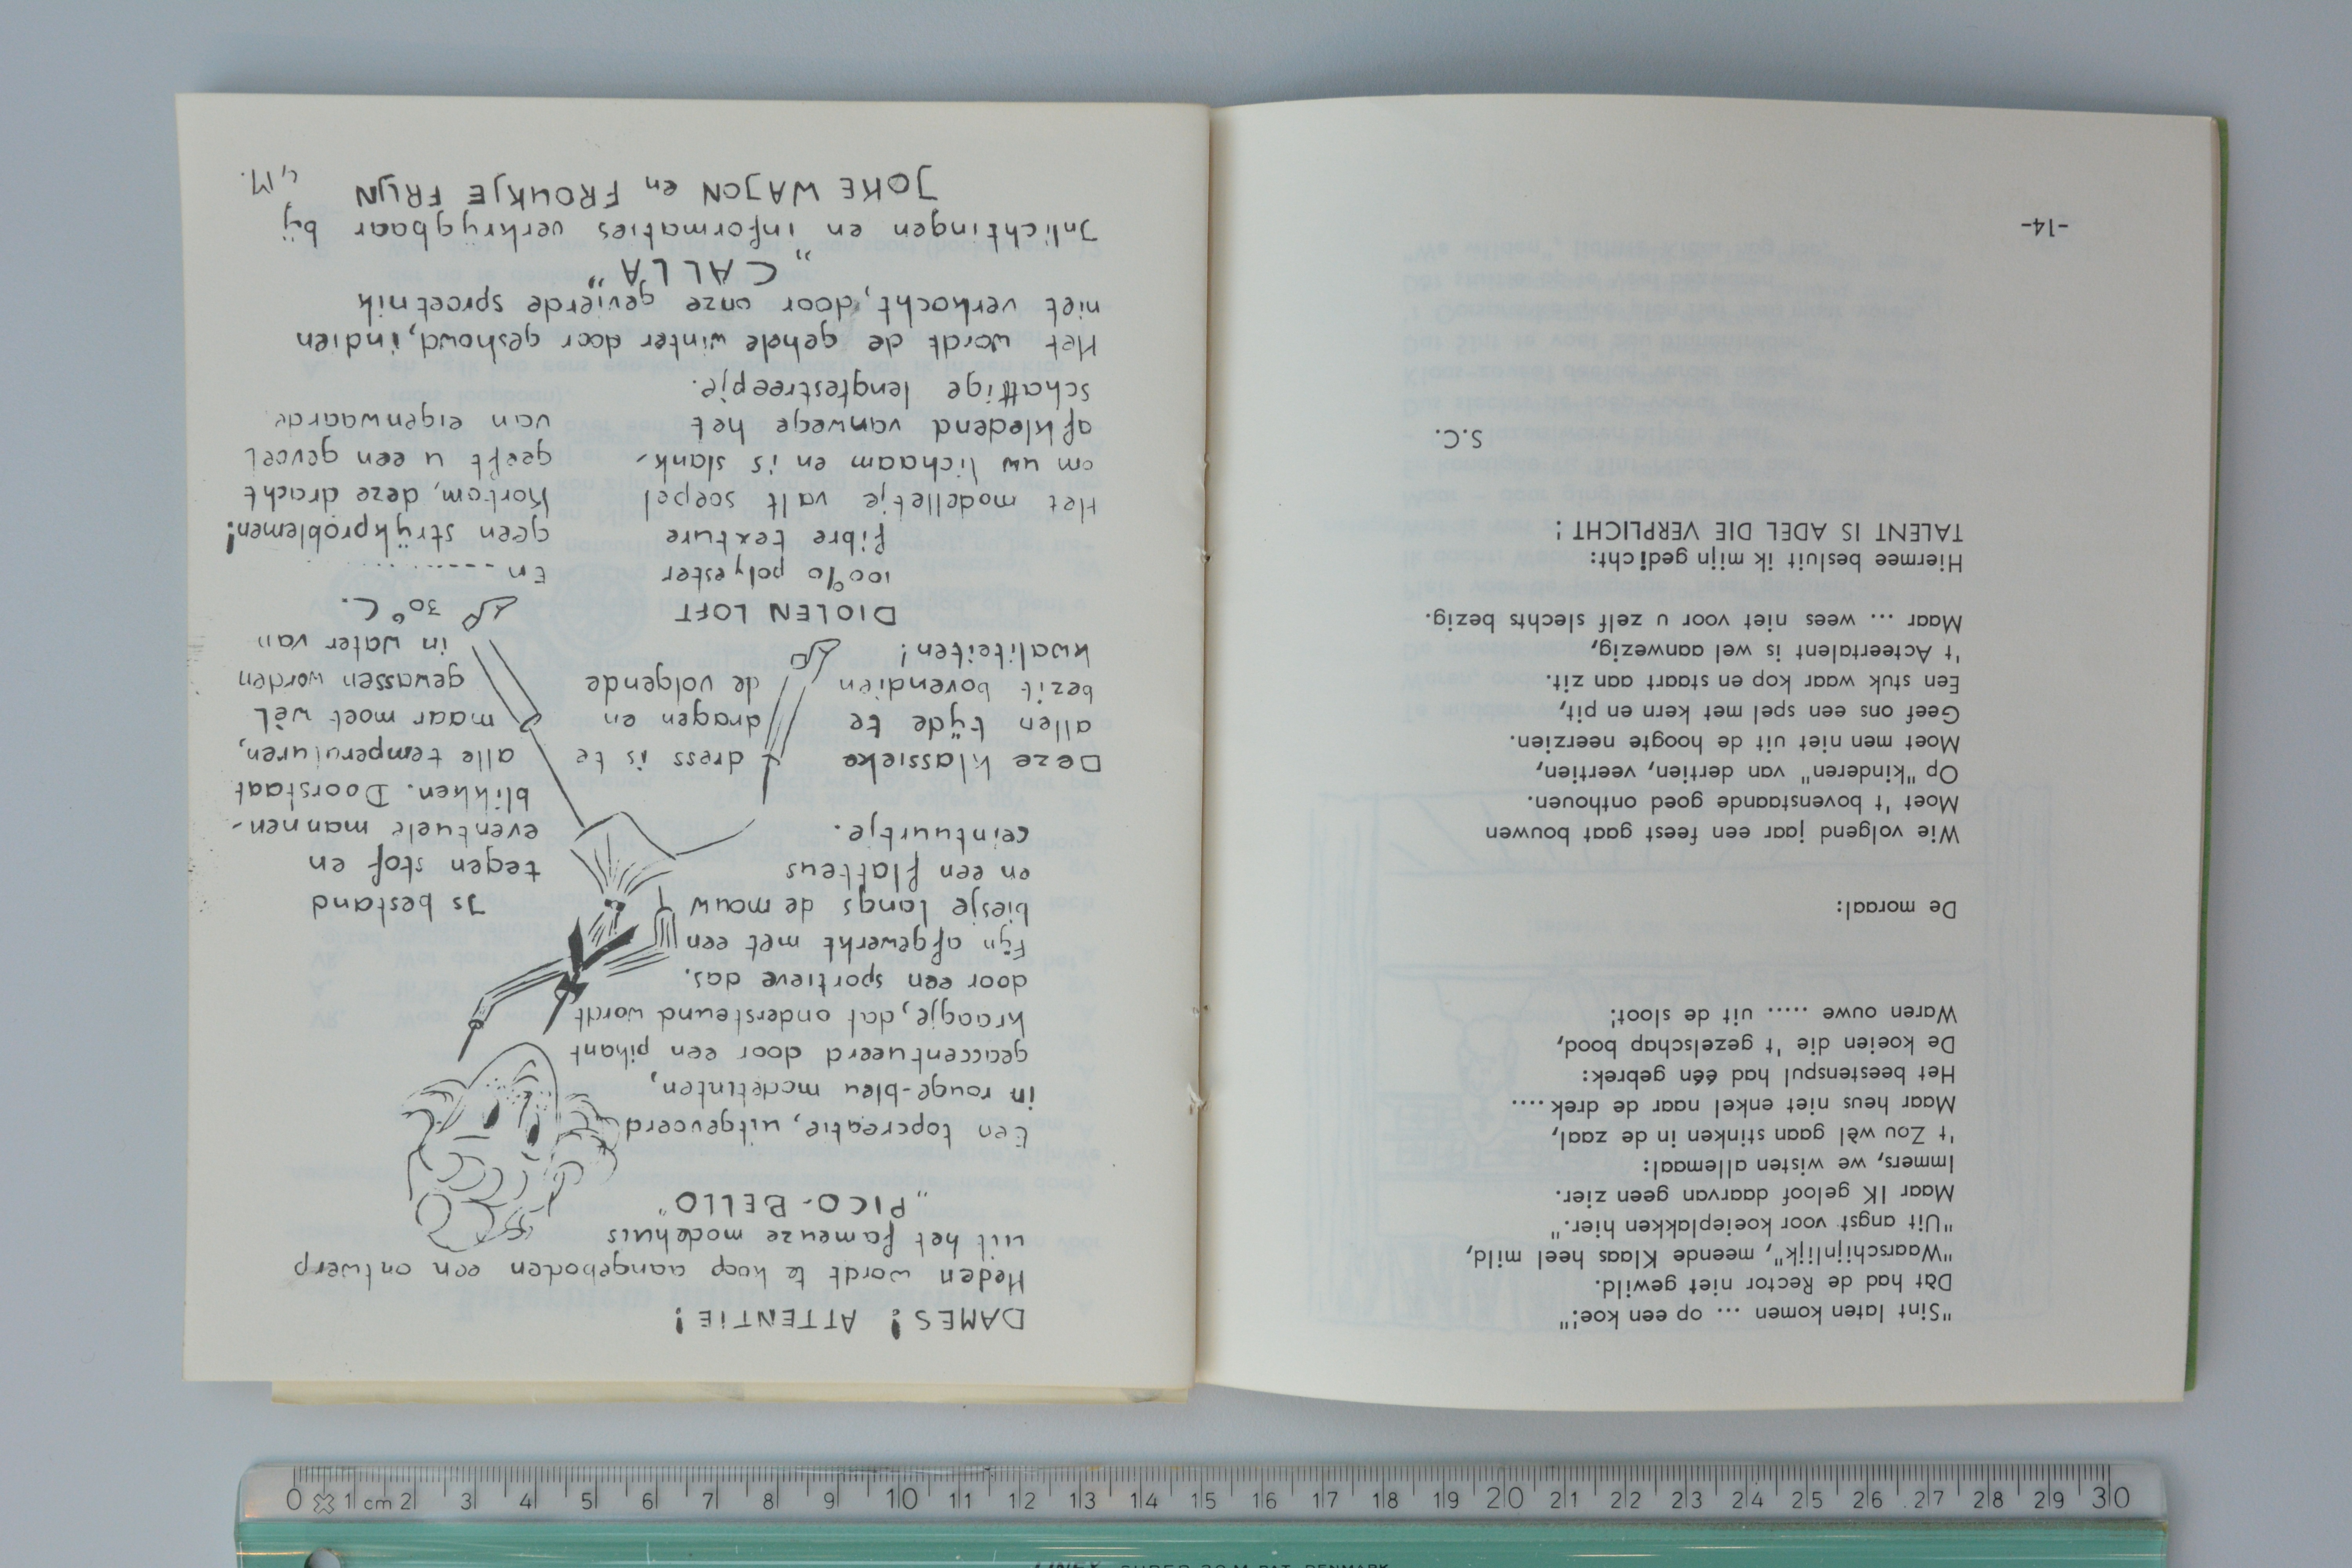 "Sint laten komen ... op een koe!"
Dàt had de Rector niet gewild.
"Waarschijnlijk", meende Klaas heel mild,
"Uit angst voor koeieplakken hier."
Maar IK geloof daarvan geen zier.
Immers, we wisten allemaal:
't Zou wèl gaan stinken in de zaal,
Maar heus niet enkel naar de drek....
Het beestenspul had één gebrek:
De koeien die 't gezelschap bood,
Waren ouwe ..... uit de sloot!
De moraal:
Wie volgend jaar een feest gaat bouwen
Moet 't bovenstaande goed onthouen.
Op "kinderen" van dertien, veertien,
Moet men niet uit de hoogte neerzien.
Geef ons een spel met kern en pit,
Een stuk waar kop en staart aan zit.
't Acteertalent is wel aanwezig,
Maar ... wees niet voor u zelf slechts bezig.
Hiermee besluit ik mijn gedicht:
TALENT IS ADEL DIE VERPLICHT !
S.C.
-14-
DAMES! ATTENTIE!
Heden wordt te koop aangeboden een ontwerp
uit het fameuze modehuis
"PICO-BELLO"
Een topcreatie, uitgevoerd
in rouge-bleu modetinten,
geaccentueerd door een pikant
kraagje, dat ondersteund wordt
door een sportieve das.
Fijn afgewerkt met een
biesje langs de mouw
en een flatteus
ceintuurtje.
Deze klassieke dress is te
allen tijde te dragen en
bezit bovendien de volgende
kwaliteiten!
DIOLEN LOFT
100% polyester
fibre texture
Het modelletje valt soepel
om uw lichaam en is slank-
afkledend vanwege het
schattige lengtestreepje.
Is bestand
tegen stof en
eventuele mannen-
blikken. Doorstaat
alle temperaturen,
maar moet wèl
gewassen worden
in water van
30° C.
En ------.....
geen strijkproblemen!
Kortom, deze dracht
geeft u een gevoel
van eigenwaarde
Het wordt de gehele winter door geshowd, indien
niet verkocht, door onze gevierde sproetnik
"CALLA"
Inlichtingen en informaties verkrijgbaar bij
JOKE WAJON en FROUKJE FRIJN
0 1 cm 2 3 4 5 6 7 8 9 10 11 12 13 14 15 16 17 18 19 20 21 22 23 24 25 26 27 28 29 30